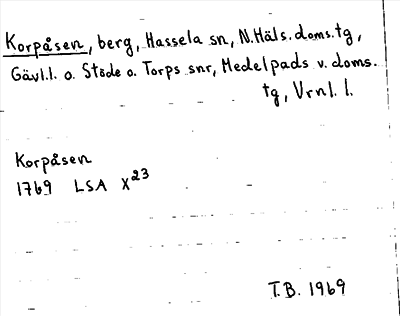 Korpåsen, berg, Hassela sn, N.Häls.doms.tg,
Gävl.l. o. Stöde o. Torps snr, Medelpads v. doms.
tg, Vrnl. l.
Korpåsen
1769 LSA X23
T.B. 1969